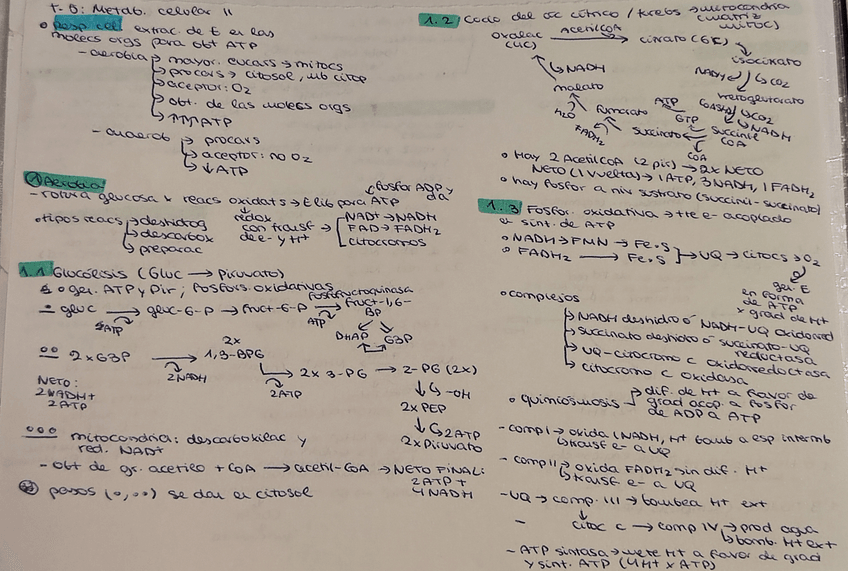 T-8: Metab. celular II
° Resp cel: extrac. de E en las
molecs orgs para obt ATP
- aerobia → mayor. eucars → mitocs
→ procars → citosol, mb citop
→ aceptor: O2
→ obt. de las molecs orgs
→ ↑↑↑ATP
- anaerob → procars
→ aceptor: no O2
→ ↓ATP
① Aerobia
- rotura glucosa x reacs oxidats → E lib para ATP
fosfor ADP y da
redox
con transf de e- y H+
NAD+ → NADH
FAD → FADH2
citocromos
° tipos reacs → deshidrog
→ descarbox
→ preparac
1.1 Glucólisis (Gluc → Piruvato)
° gen. ATP y Pir; fosfors. oxidativas
fosfofrucroquinasa
° gluc → gluc-6-P → fruct-6-P → fruct-1,6-
BP
ATP
ATP
DHAP G3P
°° 2xG3P → 2x 1,3-BPG
2NADH
2x 3-PG → 2-PG (2x)
2ATP
-OH
2x PEP
2ATP
2x Piruvato
NETO:
2NADH+
2ATP
°°° mitocondria: descarboxilac y
red. NAD+
- obt de gr. acetilo + CoA → acetil-CoA → NETO FINAL:
2ATP +
4NADH
pasos (°,°°) se dan en citosol
1.2 Ciclo del ác cítrico / Krebs → mitocondria
(matriz
mitoc)
oxalac (4C)
AcetilCoA
citrato (6C)
isocitrato
NADH
CO2
cetoglutarato
CoASH
CO2
NADH
succinil
CoA
ATP
GTP
CoA
succinato
FADH2
fumarato
H2O
malato
NADH
° Hay 2 AcetilCoA (2 pir) → 2x NETO
NETO (1 vuelta) → 1ATP, 3NADH, 1FADH2
° hay fosfor a niv sustrato (succinil-succinato)
1.3 Fosfor. oxidativa → tte e- acoplado
a sínt. de ATP
° NADH → FMN → Fe·S
° FADH2 → Fe·S
→ UQ → citocs → O2
gen E
en forma
de ATP
x grad de H+
° complejos
→ NADH deshidro ó NADH-UQ oxidored
→ succinato deshidro ó succinato-UQ
reductasa
→ UQ-citocromo c oxidorreductasa
→ citocromo c oxidasa
° quimiosmosis → dif. de H+ a favor de
grad acop. a fosfor
de ADP a ATP
- comp I → oxida 1NADH, H+ bomb a esp intermb
→ transf e- a UQ
- comp II → oxida FADH2 sin dif. H+
→ transf e- a UQ
- UQ → comp. III → bombea H+ ext
- citoc c → comp IV → prod agua
→ bomb. H+ ext
- ATP sintasa → mete H+ a favor de grad
y sint. ATP (4H+ x ATP)